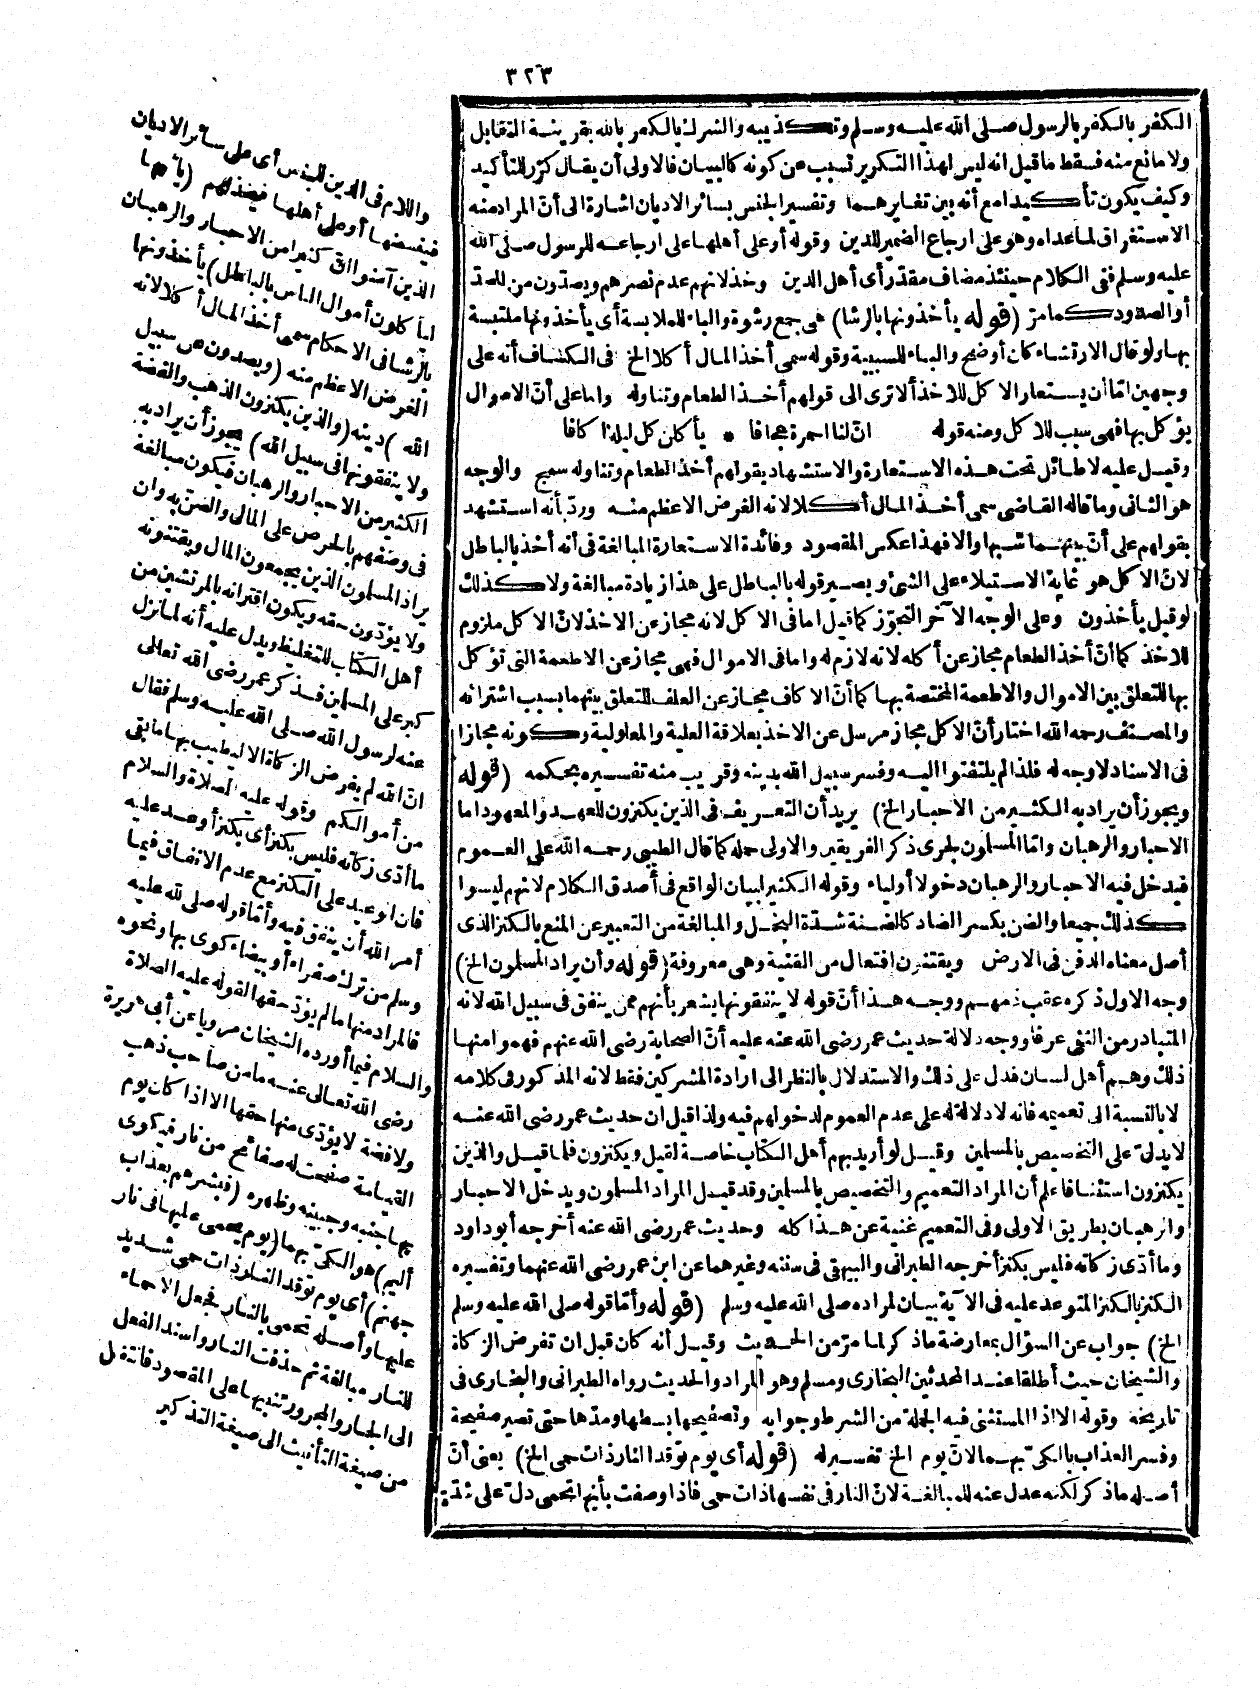 ٣٢٣
الكفر بالكفر بالرسول صلى الله عليه وسلم وتكذيبه والشرك بالكفر بالله بقرينة التقابل
ولا مانع منه فسقط ما قيل انه ليس لهذا التكرير تسبب عن كونه كالبيان فالاولى أن يقال كرّر للتأكيد
وكيف يكون تأكيدا مع أنه بين تغايرهما وتفسير الجنس بسائر الاديان اشارة الى أنّ المراد منه
الاستغراق لما عداه وهو على ارجاع الضمير للدين وقوله أو على أهلها على ارجاعه للرسول صلى الله
عليه وسلم ففى الكلام حينئذ مضاف مقدّر أى أهل الدين وخذلانهم عدم نصرهم ويصدّون من الصدّ
أو الصدود كما مرّ (قوله يأخذونها بالرشا) هى جمع رشوة والباء للملابسة أى يأخذونها ملتبسة
بها ولو قال الارتشاء كان أوضح والباء للسببية وقوله سمى أخذ المال أكلا الخ فى الكشاف أنه على
وجهين امّا أن يستعار الاكل للاخذ ألا ترى الى قولهم أخذ الطعام وتناوله واما على أنّ الاموال
يؤكل بها فهى سبب للاكل ومنه قوله انّ لنا احمرة عجافا * يأكلن كل ليلة اكافا
وقيل عليه لا طائل تحت هذه الاستعارة والاستشهاد بقولهم أخذ الطعام وتناوله سمج والوجه
هو الثانى وما قاله القاضى سمى أخذ المال أكلا لانه الغرض الاعظم منه وردّ بأنه استشهد
بقولهم على أنّ بينهما شبها والا فهذا عكس المقصود وفائدة الاستعارة المبالغة فى أنه أخذ بالباطل
لانّ الاكل هو غاية الاستيلاء على الشئ ويصير قوله بالباطل على هذا زيادة مبالغة ولا كذلك
لو قيل يأخذون وعلى الوجه الآخر التجوّز كما قيل اما فى الاكل لانه مجاز عن الاخذ لانّ الاكل ملزوم
للاخذ كما أنّ أخذ الطعام مجاز عن أكله لانه لازم له واما فى الاموال فهى مجاز عن الاطعمة التى تؤكل
بها للتعلق بين الاموال والاطعمة المختصة بها كما أنّ الاكاف مجاز عن العلف للتعلق بينهما بسبب اشترائه
والمصنف رحمه الله اختار أنّ الاكل مجاز مرسل عن الاخذ بعلاقة العلية والمعلولية وكونه مجازا
فى الاسناد لا وجه له فلذا لم يلتفتوا اليه وفسر سبيل الله بدينه وقريب منه تفسيره بحكمه (قوله
ويجوز أن يراد به الكثير من الاحبار الخ) يريد أن التعريف فى الذين يكنزون للعهد والمعهود اما
الاحبار والرهبان وامّا المسلمون لجرى ذكر الفريقين والاولى حمله كما قال الطيبى رحمه الله على العموم
فيدخل فيه الاحبار والرهبان دخولا أولياء وقوله الكثير لبيان الواقع فى أصدق الكلام لانهم ليسوا
كذلك جميعا والضن بكسر الضاد كالضنة شدّة البخل والمبالغة من التعبير عن المنع بالكنز الذى
أصل معناه الدفن فى الارض ويقتنون افتعال من القنية وهى معروفة (قوله وأن يراد المسلمون الخ)
وجه الاول ذكره عقب ذمهم ووجه هذا أنّ قوله لا ينفقونها يشعر بأنهم ممن ينفق فى سبيل الله لانه
المتبادر من النفى عرفا ووجه دلالة حديث عمر رضى الله عنه عليه أنّ الصحابة رضى الله عنهم فهموا منها
ذلك وهم أهل لسان فدل على ذلك والاستدلال بالنظر الى ارادة المشركين فقط لانه المذكور فى كلامه
لا بالنسبة الى تعميمه فانه لا دلالة له على عدم العموم لدخولهم فيه ولذا قيل ان حديث عمر رضى الله عنه
لا يدلّ على التخصيص بالمسلمين وقيل لو أريد بهم أهل الكتاب خاصة لقيل ويكنزون فلما قيل والذين
يكنزون استئنافا علم أن المراد التعميم والتخصيص بالمسلمين وقد قيل المراد المسلمون ويدخل الاحبار
والرهبان بطريق الاولى وفى التعميم غنية عن هذا كله وحديث عمر رضى الله عنه أخرجه أبو داود
وما أدّى زكاته فليس بكنز أخرجه الطبرانى والبيهقى فى سننه وغيرهما عن ابن عمر رضى الله عنهما وتفسيره
الكنز بالكنز المتوعد عليه فى الآية بيان لمراده صلى الله عليه وسلم (قوله وأمّا قوله صلى الله عليه وسلم
الخ) جواب عن السؤال بمعارضة ما ذكر لما مرّ من الحديث وقيل أنه كان قبل ان تفرض الزكاة
والشيخان حيث أطلقا عند المحدثين البخارى ومسلم وهو المراد والحديث رواه الطبرانى والبخارى فى
تاريخه وقوله الا اذا المستثنى فيه الجملة من الشرط وجوابه وتصفيحها بسطها ومدّها حتى تصير صفيحة
وفسر العذاب بالكىّ بهما لانّ يوم الخ تفسير له (قوله أى يوم توقد النار ذات حمى الخ) يعنى أنّ
أصله ما ذكر لكنه عدل عنه للمبالغة لانّ النار فى نفسها ذات حمى فاذا وصفت بأنها تحمى دلّ على شدّة
واللام فى الدين للجنس أى على سائر الاديان
فينسخها أو على أهلها فيخذلهم (يا أيها
الذين آمنوا انّ كثيرا من الاحبار والرهبان
ليأكلون أموال الناس بالباطل) يأخذونها
بالرشا فى الاحكام سمى أخذ المال أكلا لانه
الغرض الاعظم منه (ويصدون عن سبيل
الله) دينه (والذين يكنزون الذهب والفضة
ولا ينفقونها فى سبيل الله) يجوز أن يراد به
الكثير من الاحبار والرهبان فيكون مبالغة
فى وصفهم بالحرص على المال والضن به وان
يراد المسلمون الذين يجمعون المال ويقتنونه
ولا يؤدّون حقه ويكون اقترانه بالمرتشين من
أهل الكتاب للتغليظ ويدل عليه أنه لما نزل
كبر على المسلمين فذكر عمر رضى الله تعالى
عنه لرسول الله صلى الله عليه وسلم فقال
انّ الله لم يفرض الزكاة الا ليطيب بها ما بقى
من أموالكم وقوله عليه الصلاة والسلام
ما أدّى زكاته فليس بكنز أى بكنز أوعد عليه
فان الوعيد على الكنز مع عدم الانفاق فيما
أمر الله أن ينفق فيه وأمّا قوله صلى الله عليه
وسلم من ترك صفراء أو بيضاء كوى بها ونحوه
فالمراد منها ما لم يؤدّ حقها لقوله عليه الصلاة
والسلام فيما أورده الشيخان مرويا عن أبى هريرة
رضى الله تعالى عنه ما من صاحب ذهب
ولا فضة لا يؤدّى منها حقها الا اذا كان يوم
القيامة صفحت له صفائح من نار فيكوى
بها جنبه وجبينه وظهره (فبشرهم بعذاب
أليم) هو الكىّ بهما (يوم يحمى عليها فى نار
جهنم) أى يوم توقد النار ذات حمى شديد
عليها وأصله تحمى بالنار فجعل الاحماء
للنار مبالغة ثم حذفت النار واسند الفعل
الى الجار والمجرور تنبيها على المقصود فانتقل
من صيغة التأنيث الى صيغة التذكير